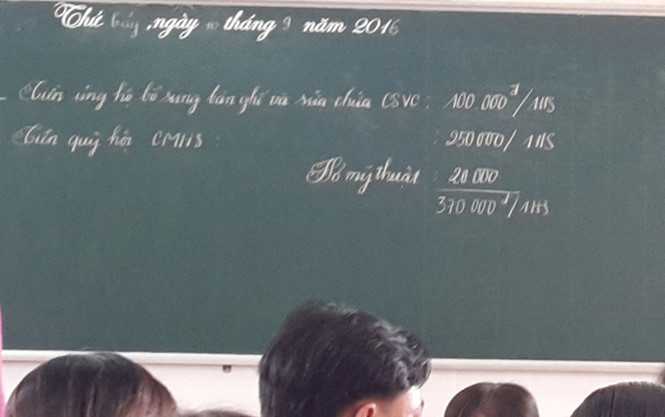 Thứ bảy, ngày 10 tháng 9 năm 2016
- Tiền ủng hộ bổ sung bàn ghế và sửa chữa CSVC: 100.000đ/1HS
Tiền quỹ hội CMHS: 250000/1HS
Hồ mỹ thuật: 20 000
370 000đ/1HS